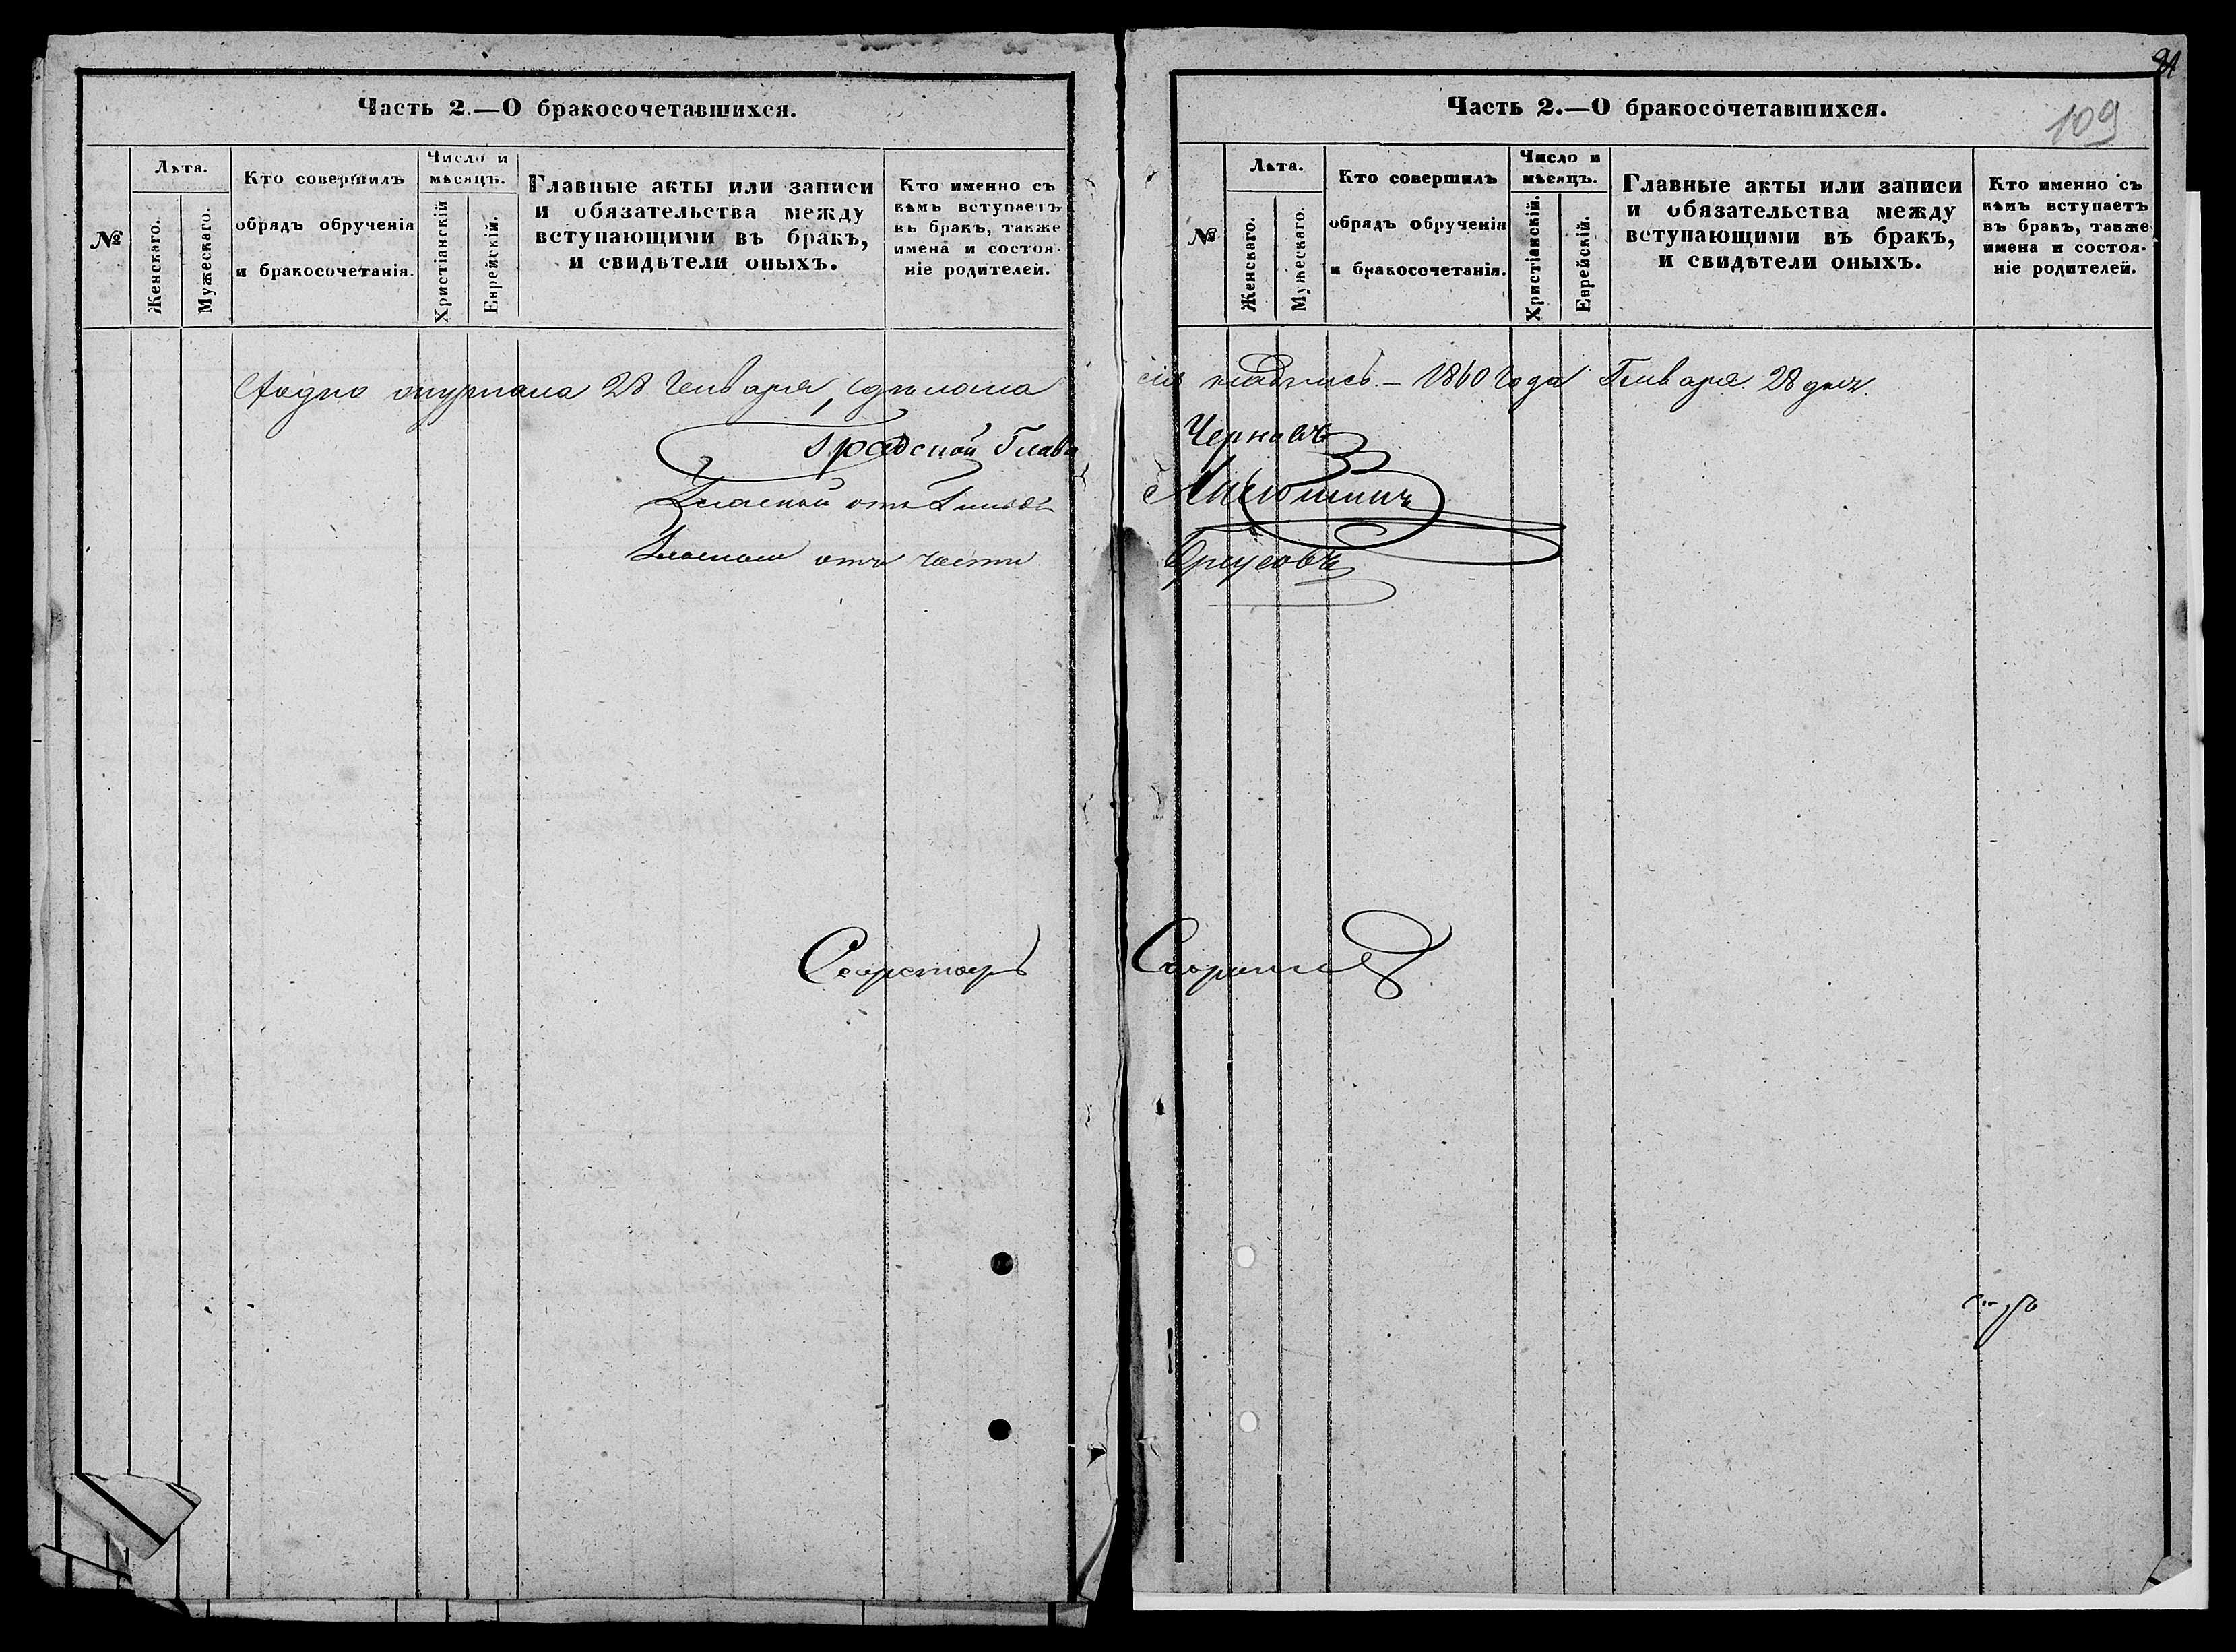 Часть 2.—О бракосочетавшихся.
№
Лѣта.
Женскаго.
Мужескаго.
Кто совершилъ
обрядъ обрученія
и бракосочетанія.
Число и
мѣсяцъ.
Христіанскій
Еврейскій.
Главные акты или записи
и обязательства между
вступающими въ бракъ,
и свидѣтели оныхъ.
Кто именно съ
кѣмъ вступаетъ
въ бракъ, также
имена и состоя-
ніе родителей.
28 Генваря, сдѣлана
Градской Глава
Гласный отъ
Гласный отъ части
Секретарь
34
Часть 2.—О бракосочетавшихся.
109
№
Лѣта.
Женскаго.
Мужескаго.
Кто совершилъ
обрядъ обрученія
и бракосочетанія.
Число и
мѣсяцъ.
Христіанскій.
Еврейскій.
Главные акты или записи
и обязательства между
вступающими въ бракъ,
и свидѣтели оныхъ.
Кто именно съ
кѣмъ вступаетъ
въ бракъ, также
имена и состоя-
ніе родителей.
сія надпись. — 1860 года Генваря 28 дня.
Черновъ